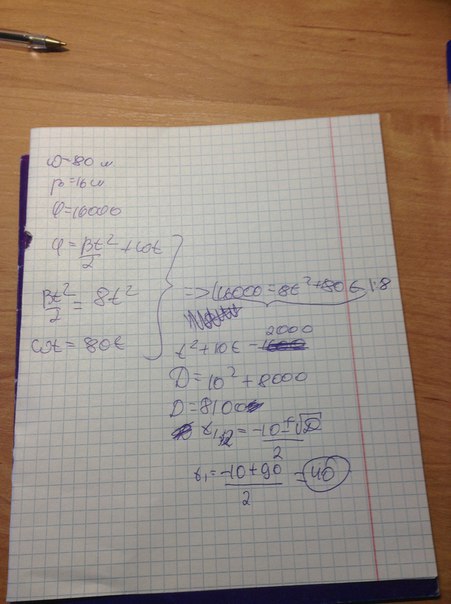 ω=80π
β=16π
φ=16000
φ=βt²/2+ωt
βt²/2=8t²
ωt=80t
=>16000=8t²+80t |:8
t²+10t-2000
D=10²+8000
D=8100
t₁,₂=-10±√D/2
t₁=-10+90/2=40